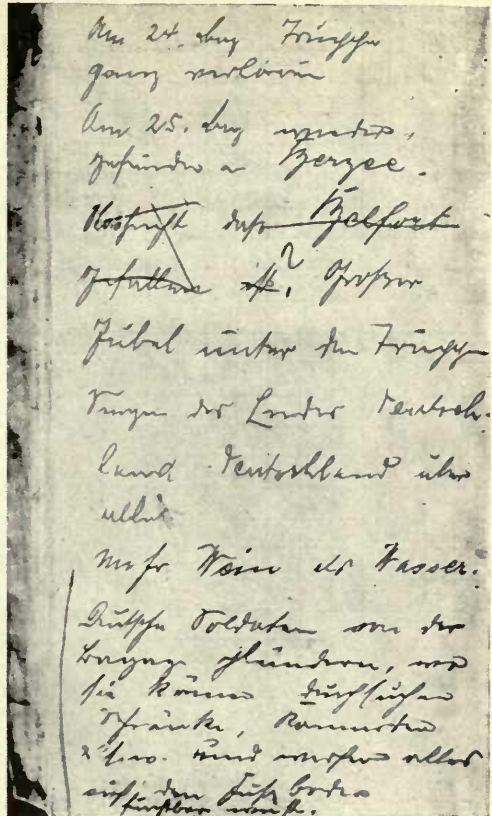 Am 24. Aug Truppe
ganz verloren
Am 25. Aug wieder
gefunden in Berzee.
Nachricht daß Belfort
gefallen ist? Großer
Jubel unter den Truppen
Singen des Liedes Deutsch-
land Deutschland über
alles
Mehr Wein als Wasser.
Deutsche Soldaten von der
Bagage plündern, wo
sie können durchsuchen
Schränke, Kommoden
u.s.w. und werfen alles
auf den Fußboden
furchtbar wüst.